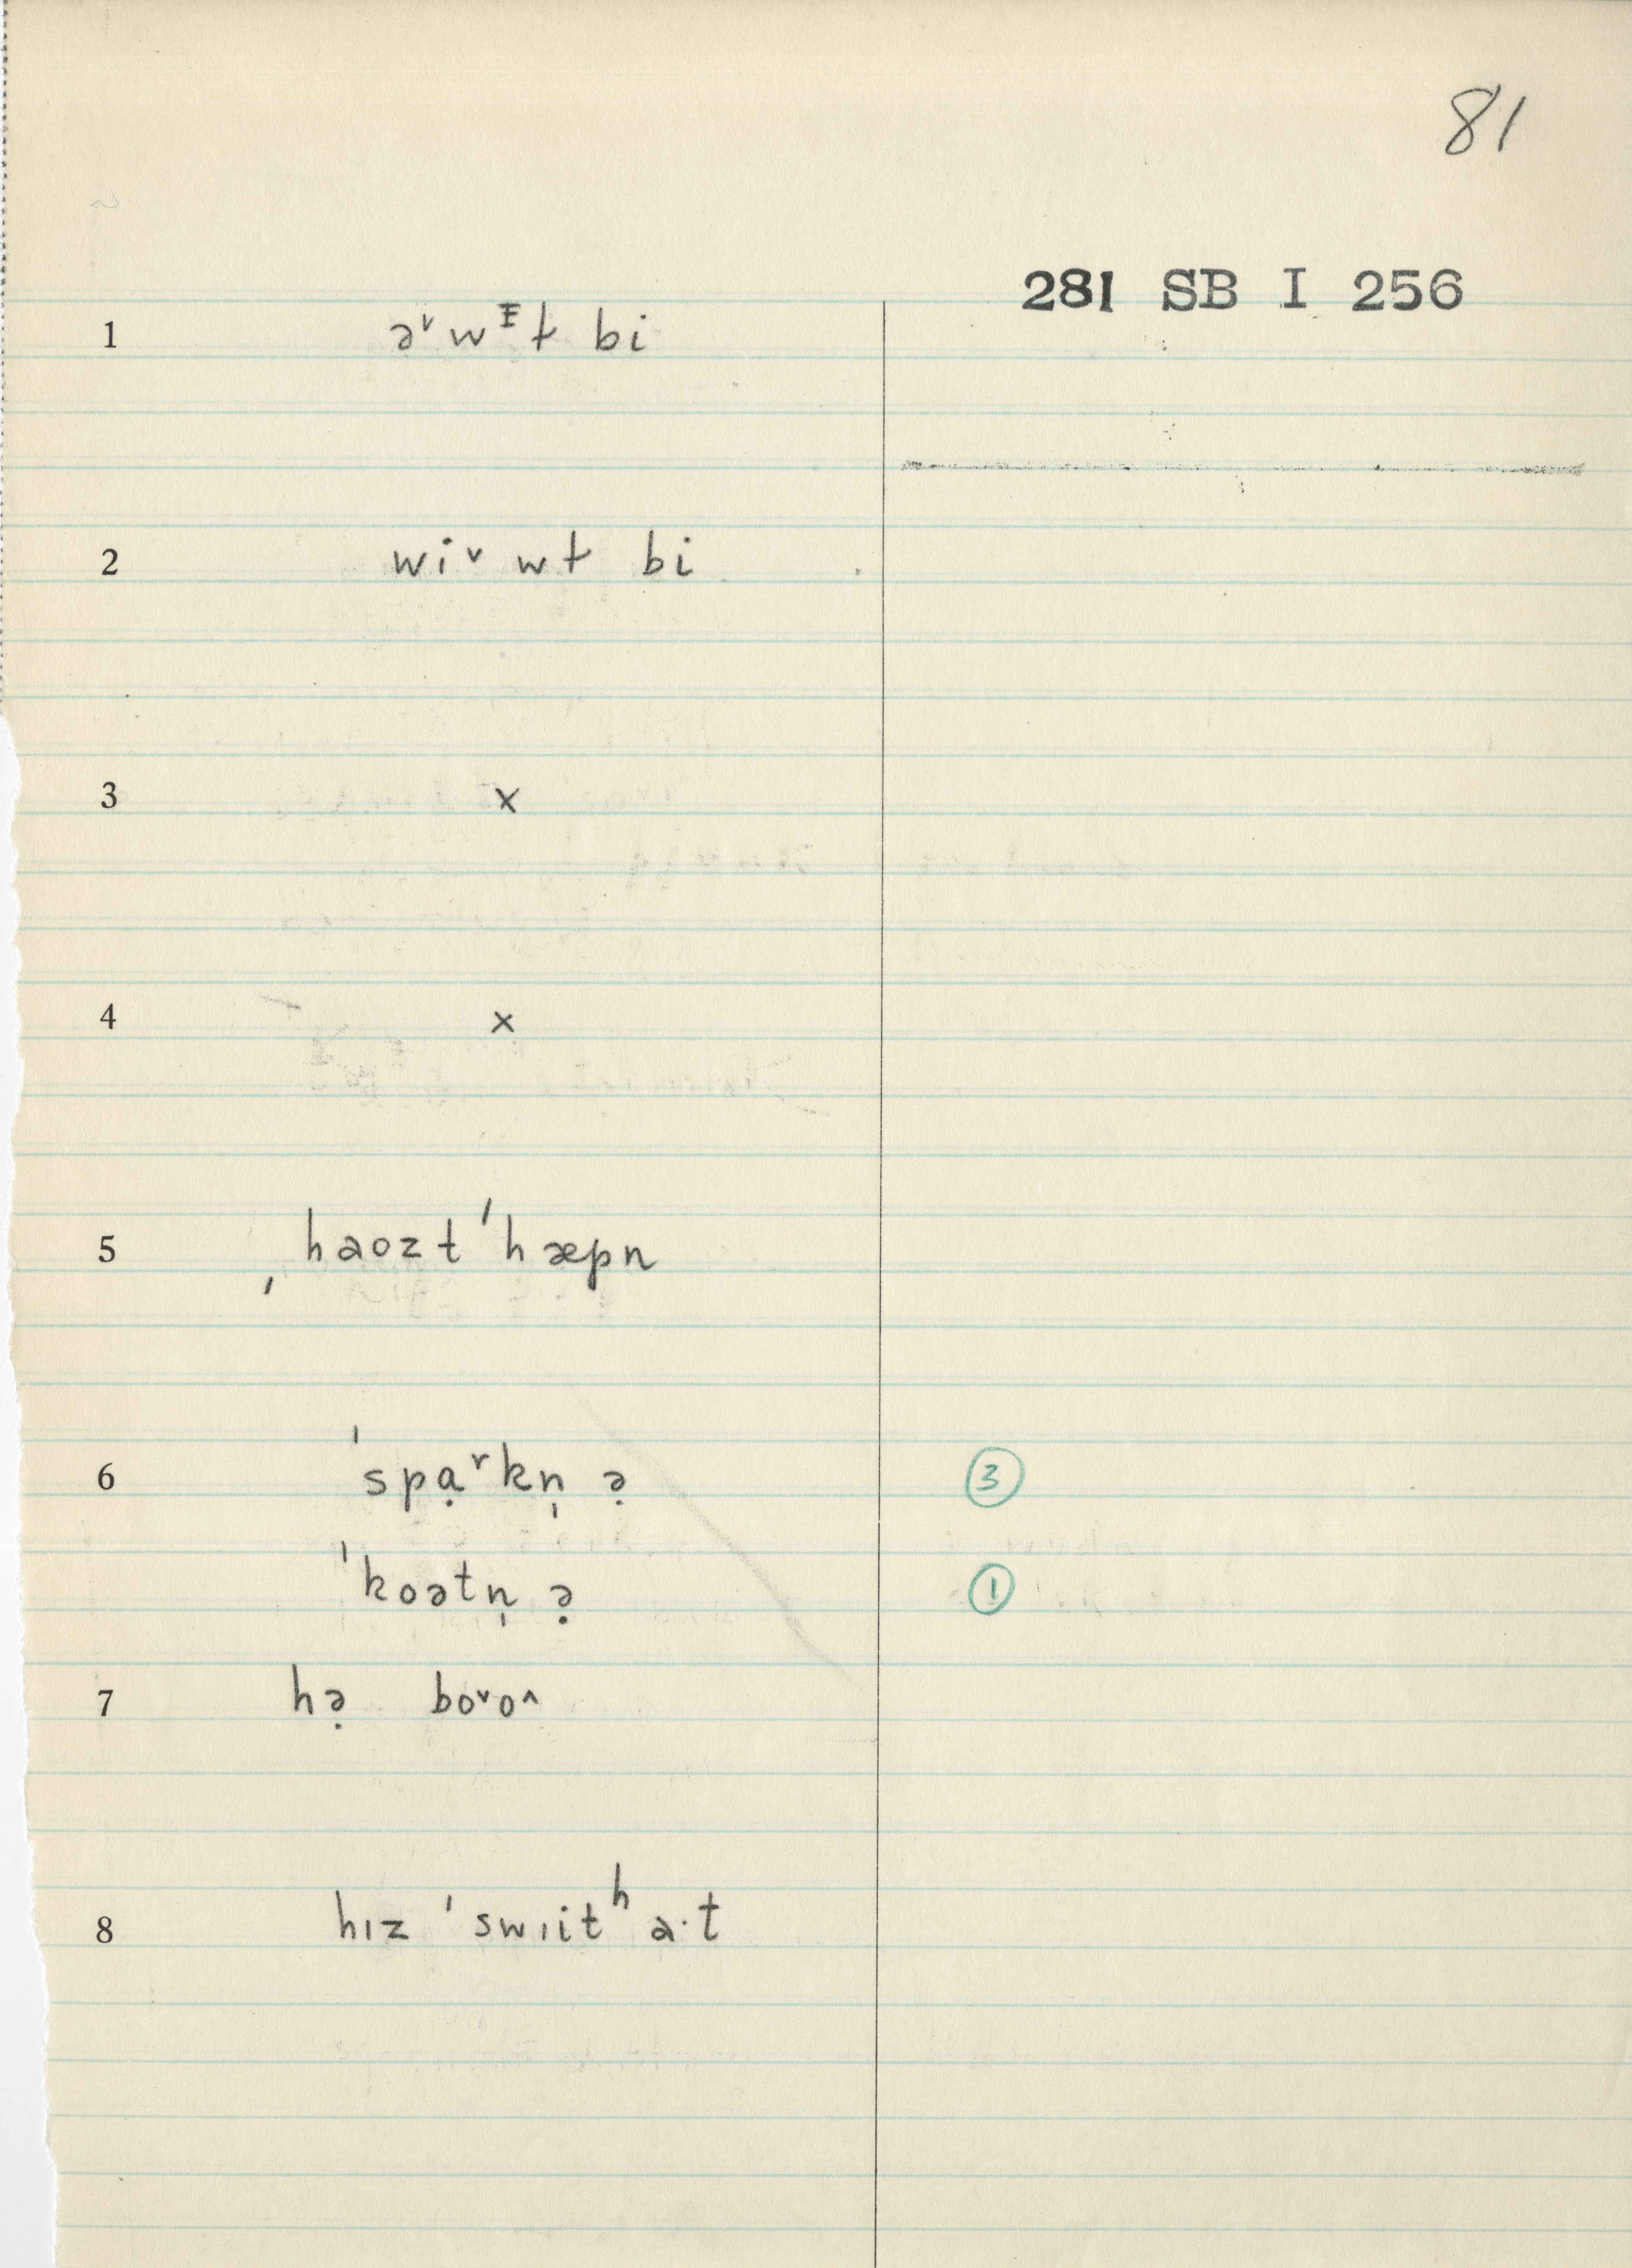 81
281 SB I 256
1 ə˅wᵻt bi
2 wi˅ wt bi
3 x
4 x
5 ˌhaozt ˈhæpn
6 ˈspạ˅kn̩ ə̣ ③
ˈkoətn̩ ə̣ ①
7 hə̣ bo˅o˄
8 hɪz ˈswɪitʰa·t